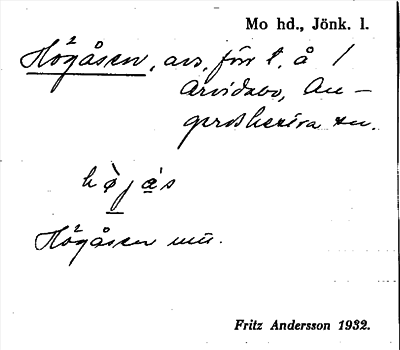 Mo hd., Jönk. l.
Högåsen, avs. förr t. å 1
Arvidabo, An-
gerdshestra sn.
Högåsen mū.
Fritz Andersson 1932.